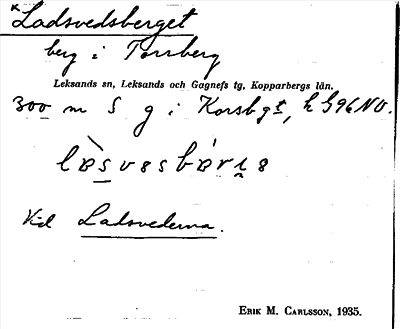 *Ladsvedsberget
berg i Torrberg
Leksands sn, Leksands och Gagnefs tg, Kopparbergs län.
300 m S g i Korsbgst, k 396 NO.
Vid Ladsvederna.
ERIK M. CARLSSON, 1935.